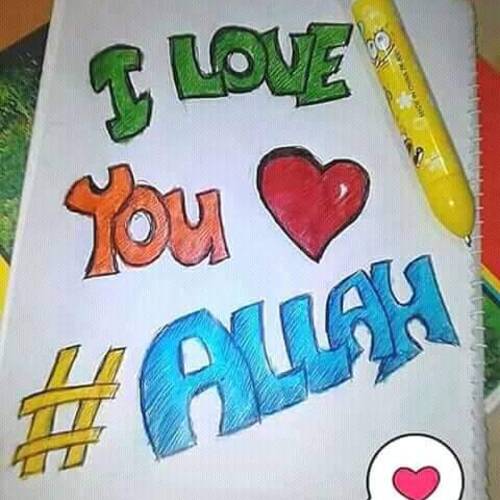 I LOVE
YOU
#ALLAH